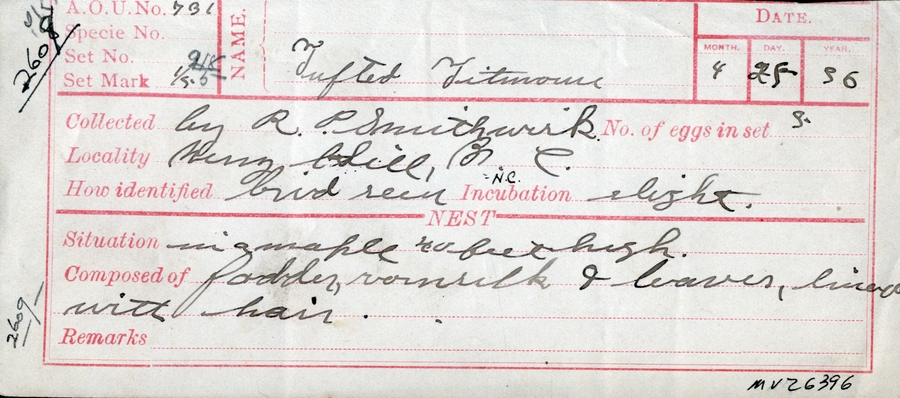 A.O.U. No. 731
Specie No.
Set No. 218
Set Mark 1/5 5
NAME.
Tufted Titmouse
DATE.
MONTH. DAY. YEAR.
4 25 96
Collected by R. P. Smithwick. No. of eggs in set 5
Locality Hill, N. C.
N.C.
How identified bird seen Incubation slight.
NEST
Situation in a maple feet high.
Composed of fodder, cornsilk & leaves, lined
with hair.
Remarks
2609
MVZ 6396